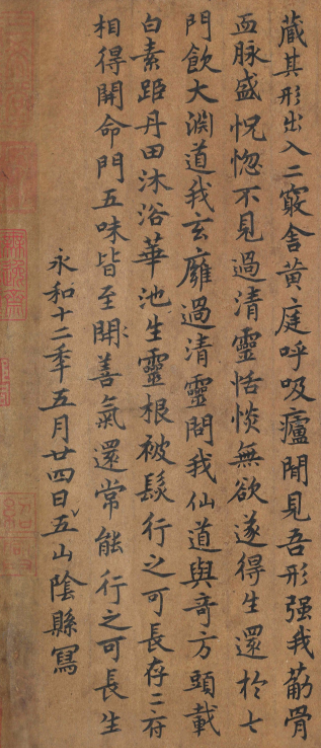 藏其形出入二竅舍黄庭呼吸廬間見吾形强我筋骨
血脉盛怳惚不見過清靈恬惔無欲遂得生還於七
門飲大淵道我玄廱過清靈問我仙道與奇方頭載
白素距丹田沐浴華池生靈根被髮行之可長存二府
相得開命門五味皆至開善氣還常能行之可長生
永和十二年五月廿四日五山陰縣寫